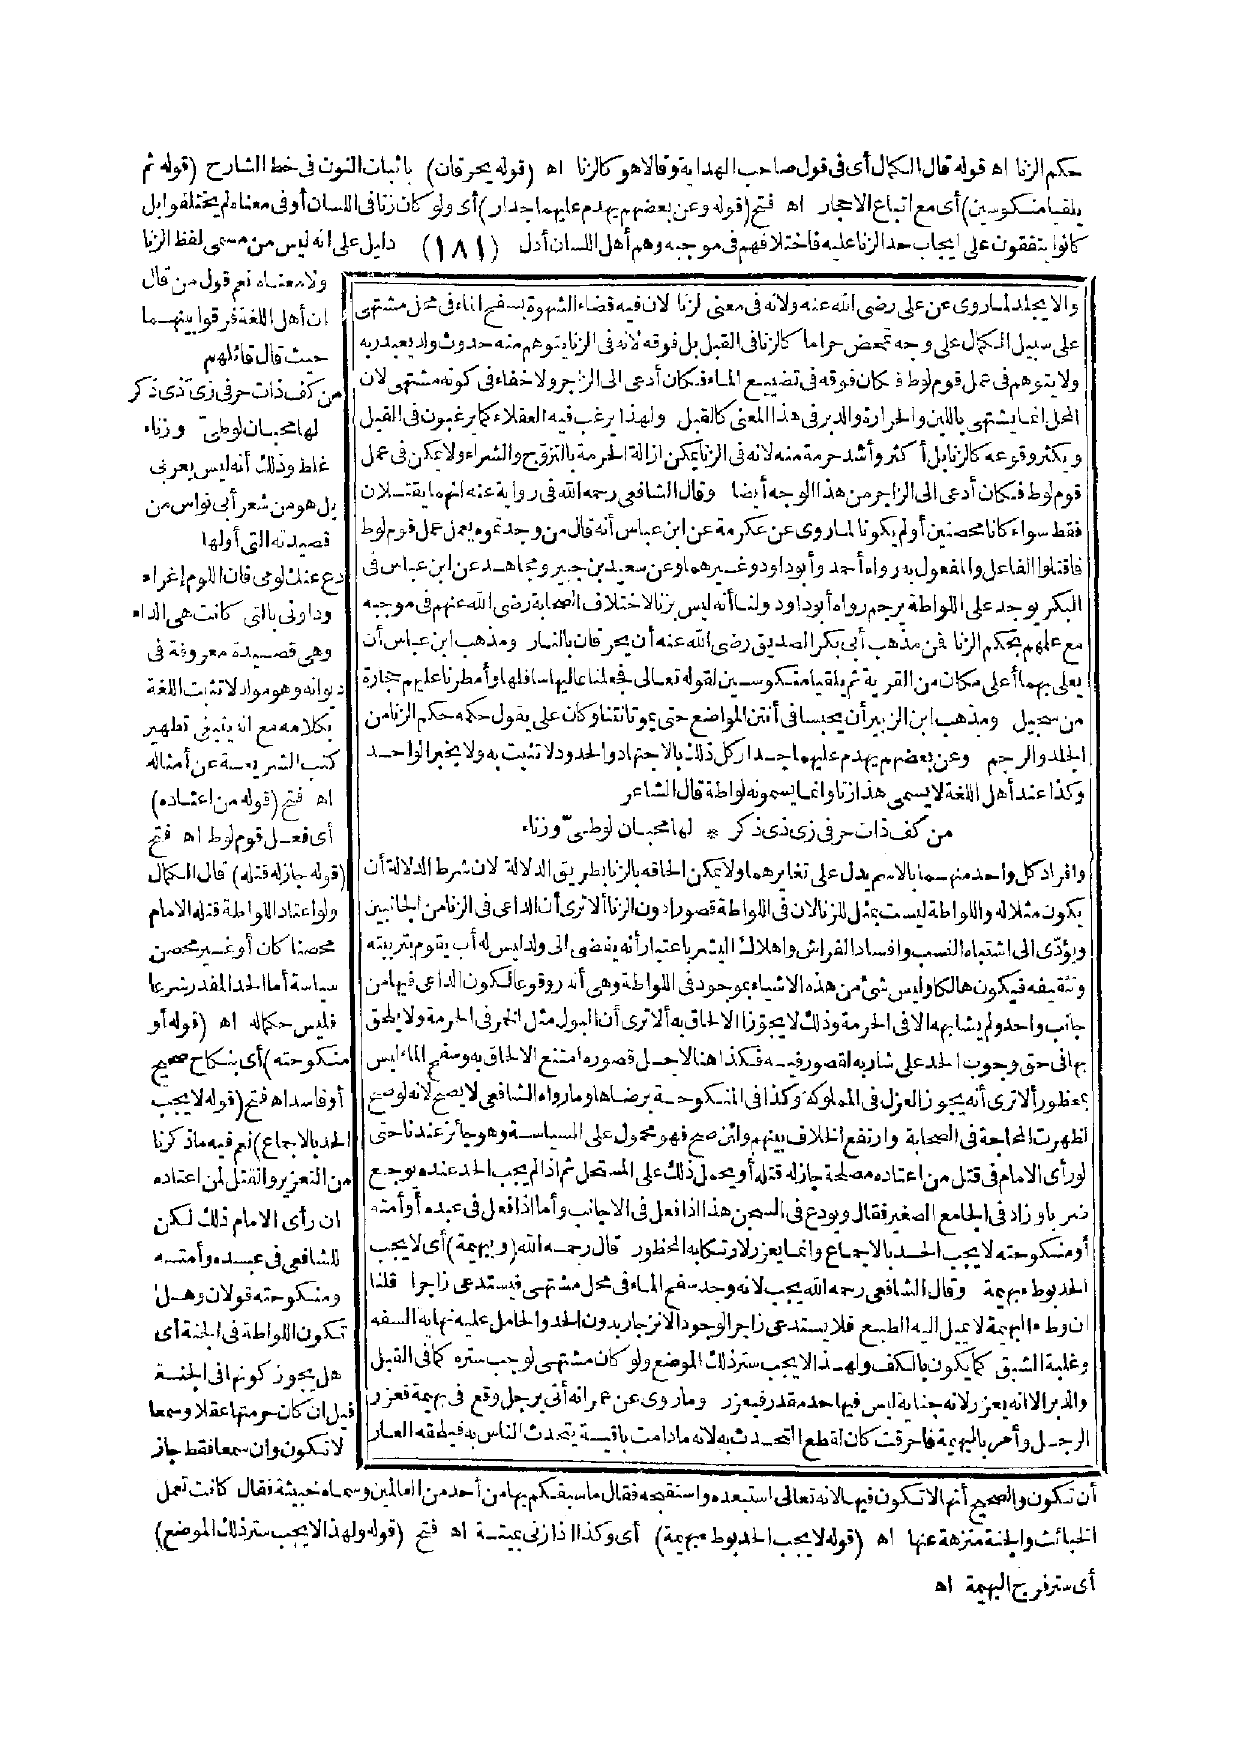 حكم الزنا اه قوله قال الكمال أى فى قول صاحب الهداية وقالا هو كالزنا اه (قوله يحرقان) باثبات النون فى خط الشارح (قوله ثم
يلقيا منكوسين) أى مع اتباع الاحجار اه فتح (قوله وعن بعضهم يهدم عليهما جدار) أى ولو كان زنا فى اللسان أو فى معناه لم يختلفوا بل
كانوا يتفقون على ايجاب حد الزنا عليه فاختلافهم فى موجبه وهم أهل اللسان أدل (١٨١) دليل على انه ليس من مسمى لفظ الزنا
ولا معناه نعم قول من قال
ان أهل اللغة فرقوا بينهما
حيث قال قائلهم
من كف ذات حر فى زى ذى ذكر
لها محبان لوطىّ وزناء
غلط وذلك أنه ليس بعربى
بل هو من شعر أبى نواس من
قصيدته التى أولها
دع عنك لومى فان اللوم إغراء
وداونى بالتى كانت هى الداء
وهى قصيدة معروفة فى
ديوانه وهو مولد لا تثبت اللغة
بكلامه مع انه ينبغى تطهير
كتب الشريعة عن أمثاله
اه فتح (قوله من اعتاده)
أى فعل قوم لوط اه فتح
(قوله جاز له قتله) قال الكمال
ولو اعتاد اللواطة قتله الامام
محصنا كان أو غير محصن
سياسة أما الحد المقدر شرعا
فليس حكما له اه (قوله أو
منكوحته) أى بنكاح صحيح
أو فاسد اه فتح (قوله لا يجب
الحد بالاجماع) نعم فيه ما ذكرنا
من التعزير والقتل لمن اعتاده
ان رأى الامام ذلك لكن
للشافعى فى عبده وأمته
ومنكوحته قولان وهل
تكون اللواطة فى الجنة أى
هل يجوز كونها فى الجنة
قيل ان كان حرمتها عقلا وسمعا
لا تكون وان سمعا فقط جاز
والا يجلد لما روى عن على رضى الله عنه ولانه فى معنى لزنا لان فيه قضاء الشهوة بسفح الماء فى محل مشتهى
على سبيل الكمال على وجه تمحض حراما كالزنا فى القبل بل فوقه لانه فى الزنا يتوهم منه حدوث ولد يعبد ربه
ولا يتوهم فى عمل قوم لوط فكان فوقه فى تضييع الماء فكان أدعى الى الزاجر ولا خفاء فى كونه مشتهى لان
المحل انما يشتهى باللين والحرارة والدبر فى هذا المعنى كالقبل ولهذا يرغب فيه العقلاء كما يرغبون فى القبل
ويكثر وقوعه كالزنا بل أكثر وأشد حرمة منه لانه فى الزنا يمكن ازالة الحرمة بالتزوج والشراء ولا يمكن فى عمل
قوم لوط فكان أدعى الى الزاجر من هذا الوجه أيضا وقال الشافعى رحمه الله فى رواية عنه انهما يقتلان
فقط سواء كانا محصنين أو لم يكونا لما روى عن عكرمة عن ابن عباس أنه قال من وجدتموه يعمل عمل قوم لوط
فاقتلوا الفاعل والمفعول به رواه أحمد وأبو داود وغيرهما وعن سعيد بن جبير ومجاهد عن ابن عباس فى
البكر يوجد على اللواطة يرجم رواه أبو داود ولنا أنه ليس بزنا لاختلاف الصحابة رضى الله عنهم فى موجبه
مع علمهم بحكم الزنا فمن مذهب أبى بكر الصديق رضى الله عنه أن يحرقان بالنار ومذهب ابن عباس أن
يعلى بهما أعلى مكان من القرية ثم يلقيا منكوسين لقوله تعالى فجعلنا عاليها سافلها وأمطرنا عليهم حجارة
من سجيل ومذهب ابن الزبير أن يحبسا فى أنتن المواضع حتى يموتا نتنا وكان على يقول حكمه حكم الزنا من
الجلد والرجم وعن بعضهم يهدم عليهما جدار كل ذلك بالاجتهاد والحدود لا تثبت به ولا بخبر الواحد
وكذا عند أهل اللغة لا يسمى هذا زنا وانما يسمونه لواطة قال الشاعر
من كف ذات حر فى زى ذى ذكر * لها محبان لوطىّ وزناء
وافراد كل واحد منهما بالاسم يدل على تغايرهما ولا يمكن الحاقه بالزنا بطريق الدلالة لان شرط الدلالة أن
يكون مثلا له واللواطة ليست بمثل للزنا لان فى اللواطة قصورا دون الزنا ألا ترى أن الداعى فى الزنا من الجانبين
ويؤدّى الى اشتباه النسب وافساد الفراش واهلاك البشر باعتبار أنه يفضى الى ولد ليس له أب يقوم بتربيته
وتثقيفه فيكون هالكا وليس شئ من هذه الاشياء بموجود فى اللواطة وهى أندر وقوعا لكون الداعى فيها من
جانب واحد ولم يشابهه الا فى الحرمة وذلك لا يجوّز الالحاق به ألا ترى أن البول مثل الخمر فى الحرمة ولا يلحق
بها فى حق وجوب الحد على شاربه لقصور فيه فكذا هنا لاجل قصوره امتنع الالحاق به وسفح الماء ليس
بمحظور ألا ترى أنه يجوز العزل فى المملوكة وكذا فى المنكوحة برضاها وما رواه الشافعى لا يصح لانه لو صح
لظهرت المحاجة فى الصحابة وارتفع الخلاف بينهم ولئن صح فهو محمول على السياسة وهو جائز عندنا حتى
لو رأى الامام فى قتل من اعتاده مصلحة جاز له قتله أو يحمل ذلك على المستحل ثم اذا لم يجب الحد عنده يوجع
ضربا وزاد فى الجامع الصغير فقال ويودع فى السجن هذا اذا فعل فى الاجانب وأما اذا فعل فى عبده أو أمته
أو منكوحته لا يجب الحد بالاجماع وانما يعزر لارتكابه المحظور قال رحمه الله (وبهيمة) أى لا يجب
الحد بوطء بهيمة وقال الشافعى رحمه الله يجب لانه وجد سفح الماء فى محل مشتهى فيستدعى زاجرا قلنا
ان وطء البهيمة لا يميل اليه الطبع فلا يستدعى زاجرا لوجود الانزجار بدون الحد والحامل عليه نهاية السفه
وغلبة الشبق كما يكون بالكف ولهذا لا يجب ستر ذلك الموضع ولو كان مشتهى لوجب ستره كما فى القبل
والدبر الا انه يعزر لانه جناية ليس فيها حد مقدر فيعزر وما روى عن عمر انه أتى برجل وقع فى بهيمة فعزر
الرجل وأمر بالبهيمة فأحرقت كان لقطع التحدث به لانه مادامت باقية يتحدث الناس به فيلحقه العار
أن تكون والصحيح أنها لا تكون فيها لانه تعالى استبعده واستقبحه فقال ما سبقكم بها من أحد من العالمين وسماه خبيثة فقال كانت تعمل
الخبائث والجنة منزهة عنها اه (قوله لا يجب الحد بوطء بهيمة) أى وكذا اذا زنى بميتة اه فتح (قوله ولهذا لا يجب ستر ذلك الموضع)
أى ستر فرج البهيمة اه